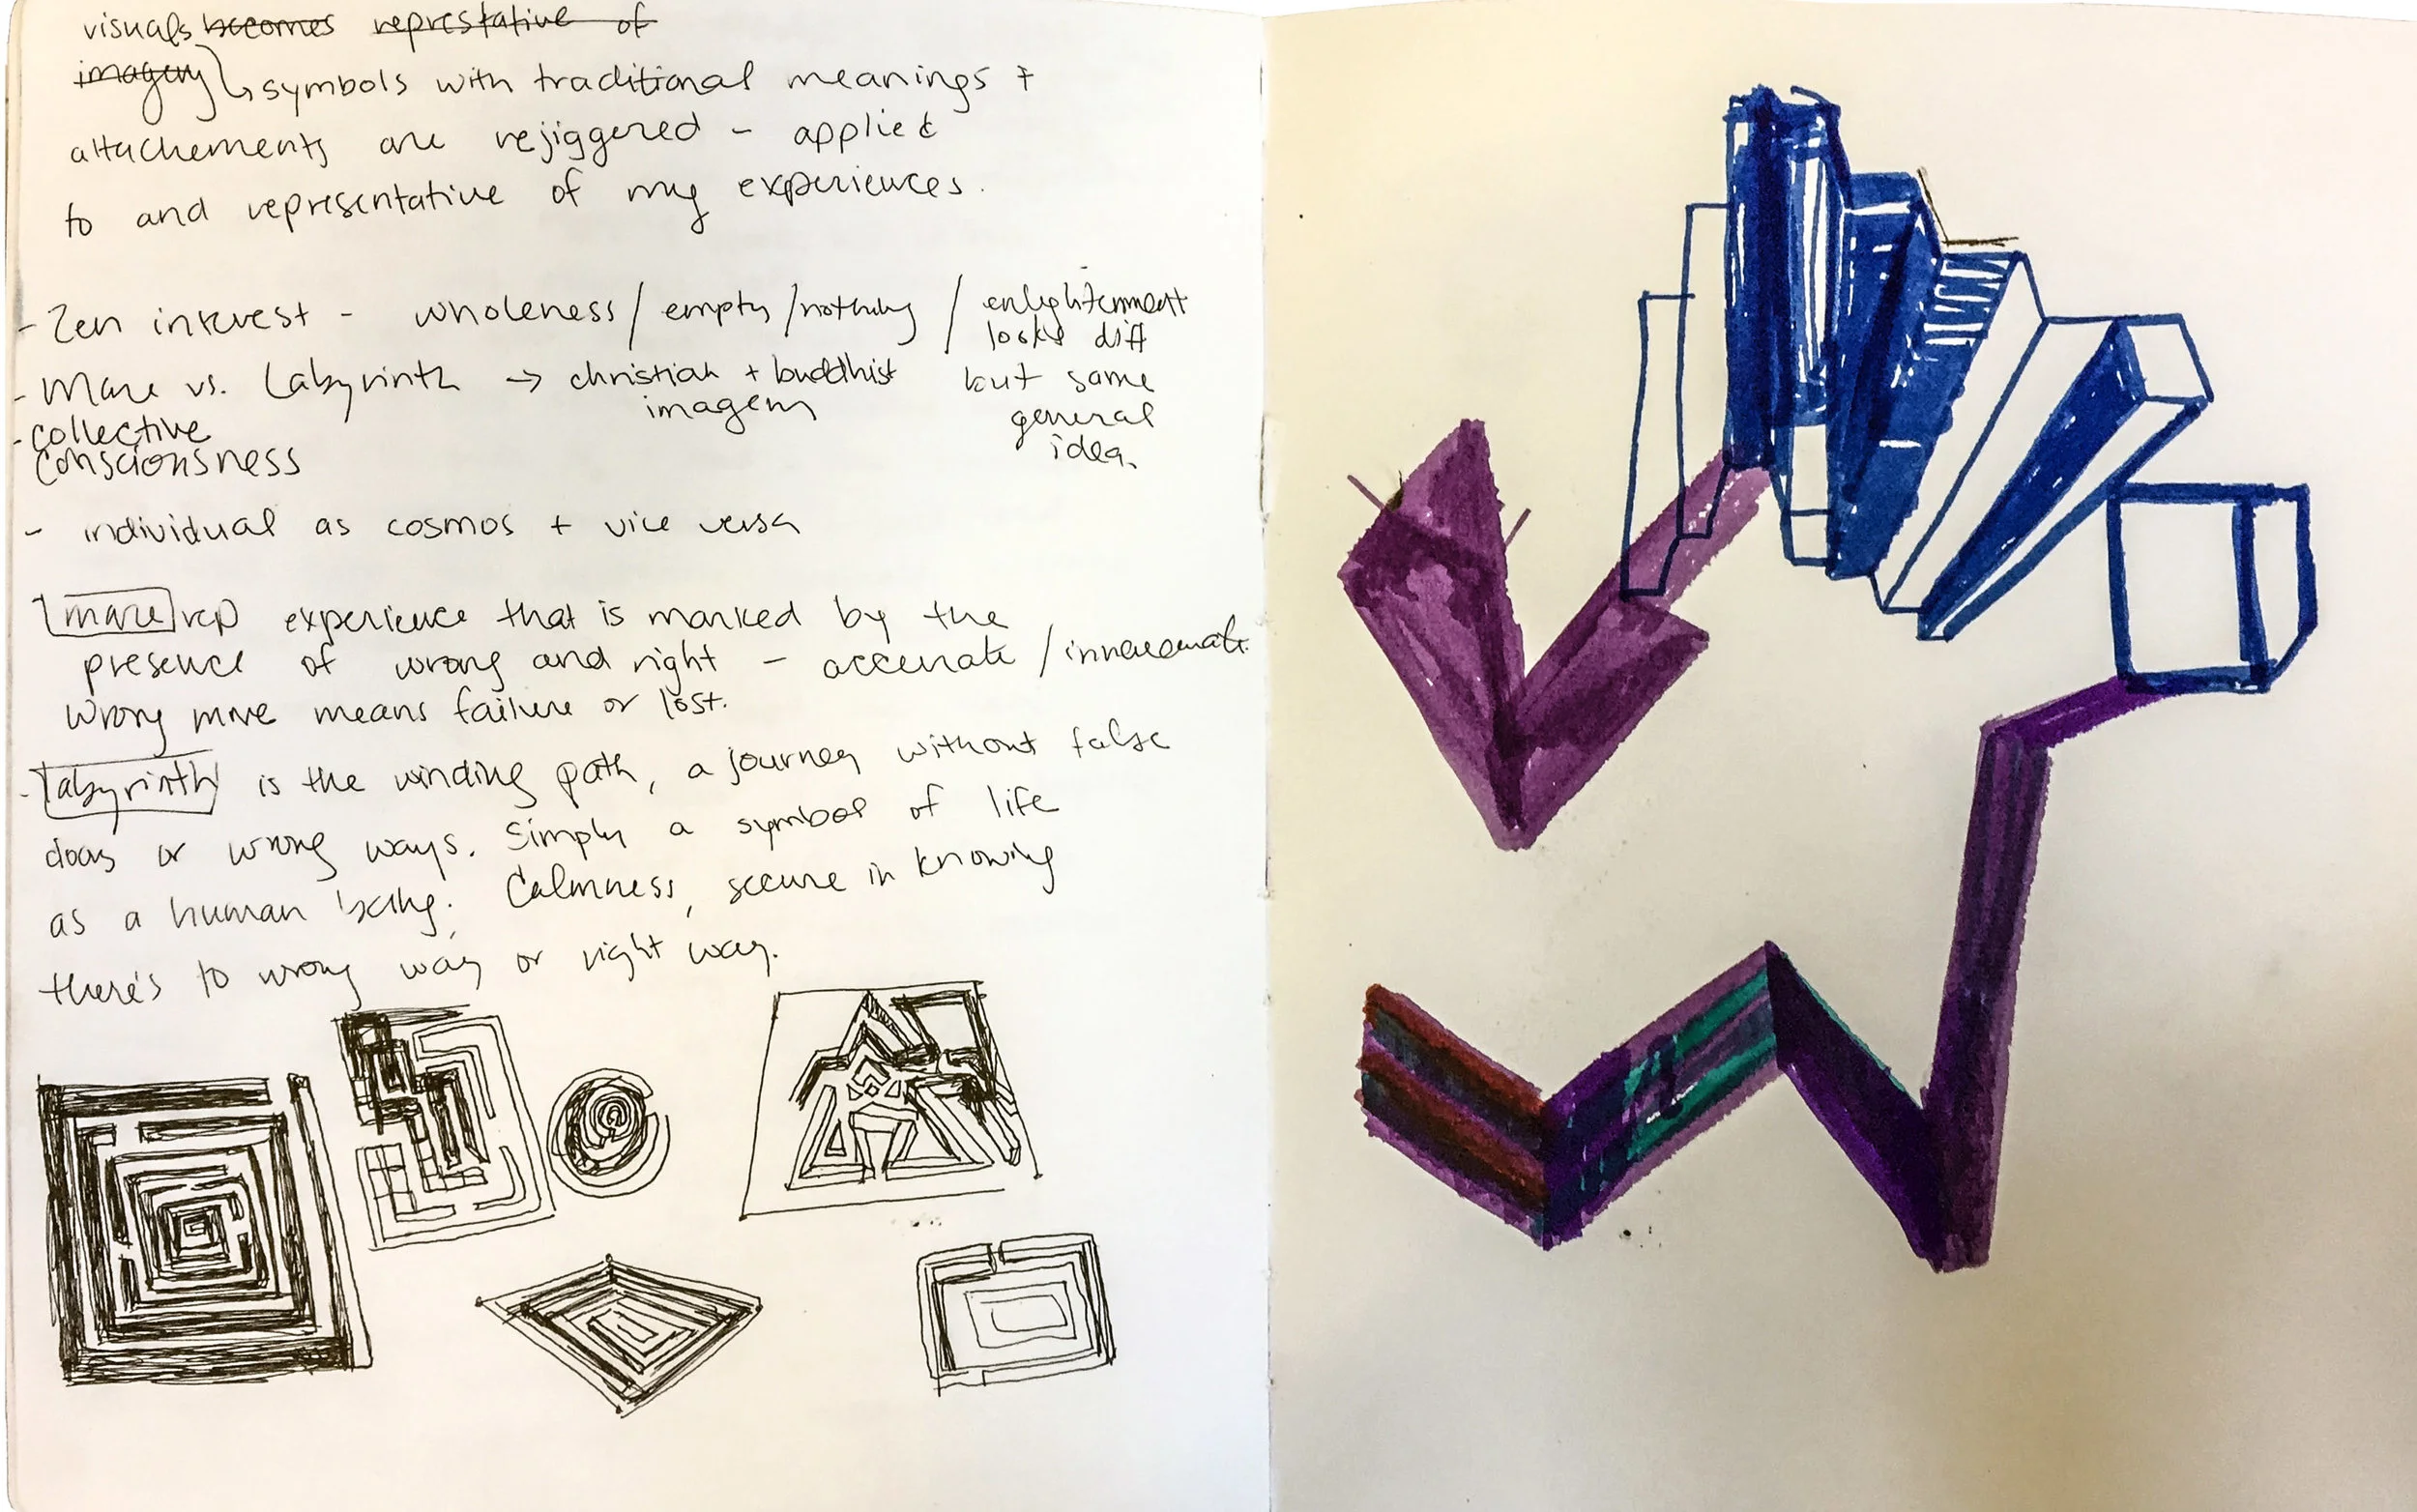 visuals becomes represtative of
imagery symbols with traditional meanings +
attachements are rejiggered - applied
to and representative of my experiences.
- Zen interest - wholeness / empty / nothing / enlightenment
looks diff
but same
general
idea.
- Maze vs. Labyrinth → christian + buddhist
imagery
- collective
consciousness
- individual as cosmos + vice versa
maze rep experience that is marked by the
presence of wrong and right - accurate / innaccurate
wrong move means failure or lost.
- labyrinth is the winding path, a journey without false
doors or wrong ways. Simply a symbol of life
as a human being. Calmness, secure in knowing
there's to wrong way or right way.